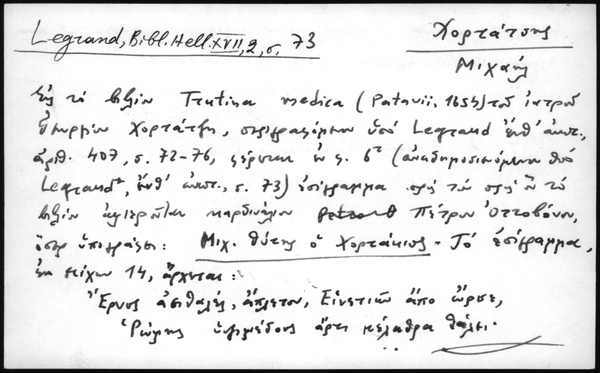 Legrand, Bibl. Hell. XVII, 2, σ. 73
Χορτάτσης
Μιχαήλ
Εἰς τὸ βιβλίον Trutina medica (Patavii, 1654) τοῦ ἰατροῦ
Χορτάτζη, περιγραφόμενον ὑπὸ Legrand ἔνθ' ἀνωτ.,
ἀριθ. 407, σ. 72-76, φέρεται ἐν φ. 6 (ἀναδημοσιευόμενον ὑπὸ
Legrand, ἔνθ' ἀνωτ., σ. 73) ἐπίγραμμα πρὸς τὸν πρὸς ὃν τὸ
βιβλίον ἀφιεροῦται καρδινάλιον Πέτρον Ὀττοβόνον,
ὅπερ ὑπογράφει: Μιχ. θύτης ὁ Χορτάκιος - Τὸ ἐπίγραμμα,
ἐκ στίχων 14, ἄρχεται:
Ἔρνος ἀειθαλές, ἄπλετον, Εἰνετιῶν ἄπο ὦρσε,
Ῥώμης ὑψιμέδους ἄρτι μέλαθρα θάλει.